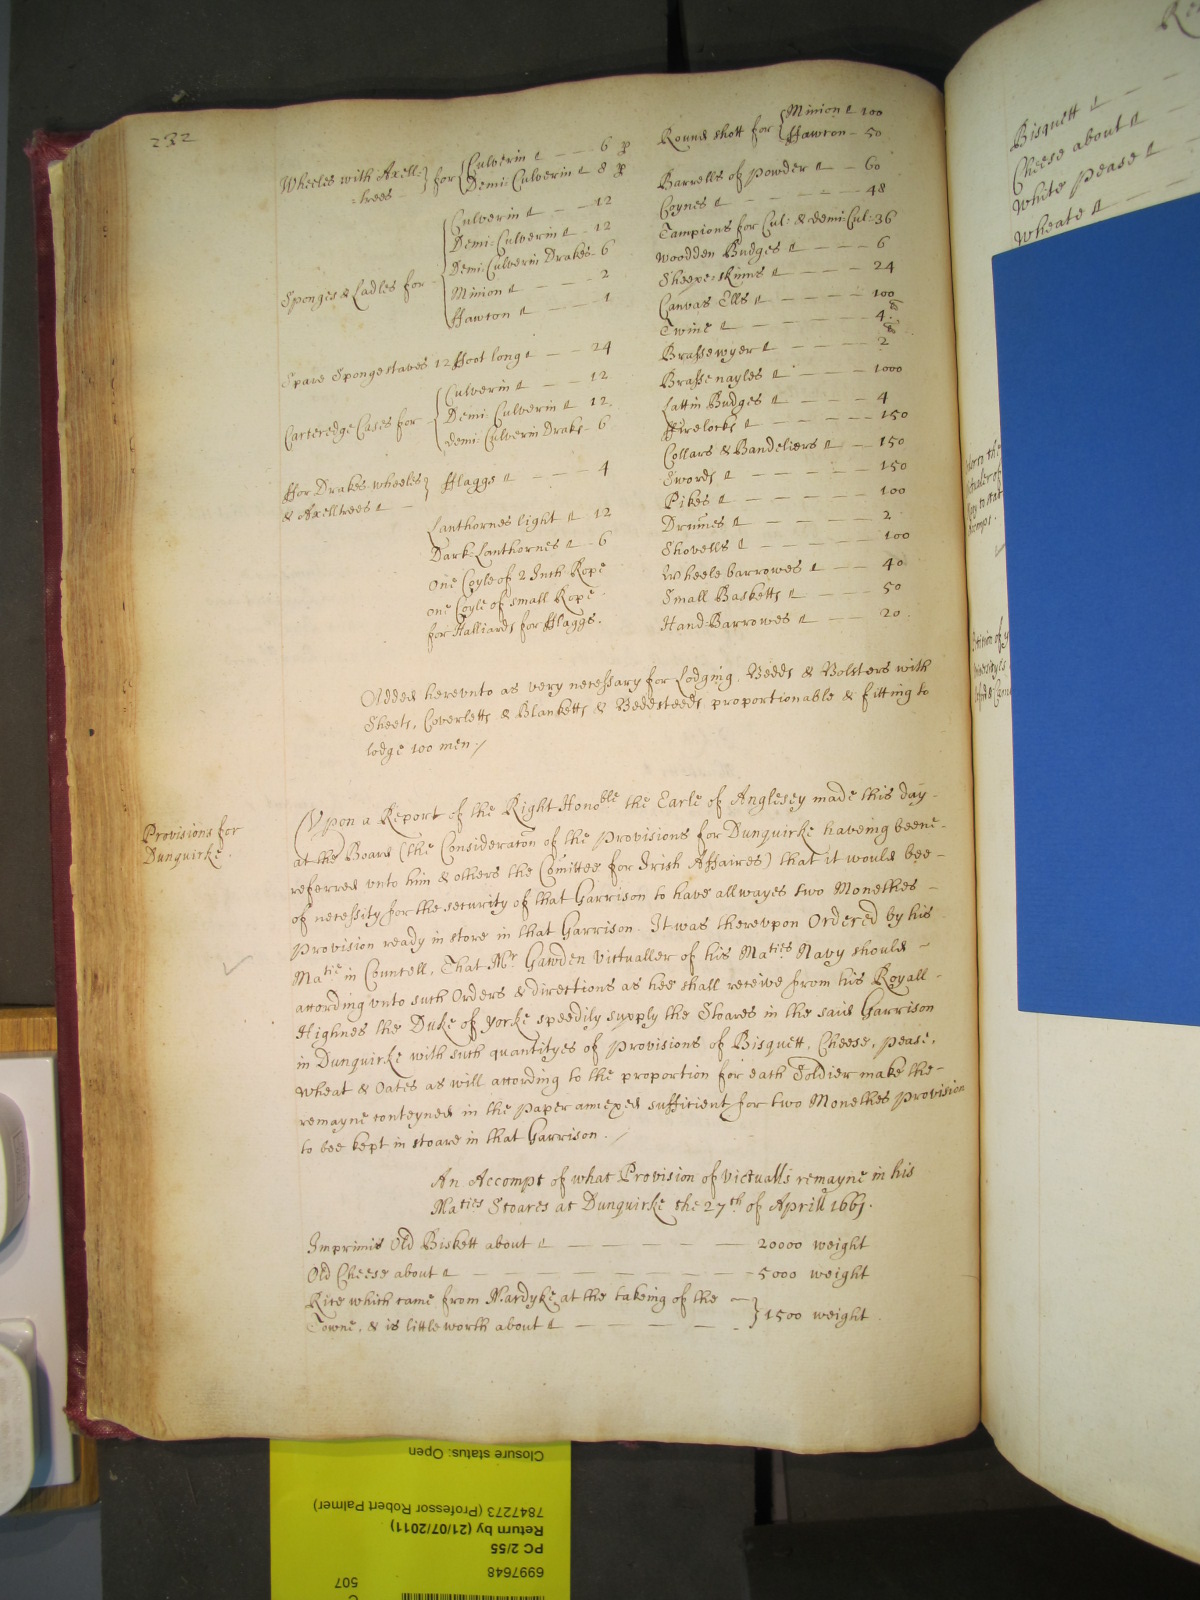 232
Wheeles with Axell= } for { Culverin — — 6 pr
=trees { Demi-Culverin 8 pr
Sponges & Ladles for { Culverin — — 12
Demi-Culverin — 12
Demi-Culverin Drakes — 6
Minion — — 2
ffawcon — — 1
Spare Spongestaves 12 ffoot long — — 24
Carteredge Cases for { Culverin — — 12
Demi-Culverin 12
demi-Culverin Draks — 6
ffor Drakes-wheeles } fflaggs — — — 4
& Axelltrees —
Lanthornes light 12
Dark-Lanthornes — 6
One Coyle of 2 Inch Rope
one Coyle of small Rope
for Halliards for fflaggs.
Round shott for { Minion 100
ffawcon — 50
Barrells of powder — 60
Coynes — — — 48
Tampions for Cul: & demi-Cul: 36
Woodden Budges — — — 6
Sheepe-skinns — — — 24
Canvas Ells — — — — 100
Twine — — — — — 4
Brasse wyer — — — — 2
Brasse nayles — — — 1000
Lattin Budges — — — — 4
ffirelocks — — — — 150
Collars & Bandeliers — 150
Swords — — — — — 150
Pikes — — — — — 100
Drum̄es — — — — — 2
Shovells — — — — — 100
Wheele barrowes — — 40
Small Basketts — — — 50
Hand-Barrowes — — 20
Added herevnto as very necessary for Lodging, Bedds & Bolsters with
Sheets, Coverletts & Blanketts & Beddsteeds proportionable & fitting to
lodge 100 men /
Provisions for
Dunquirke.
Vpon a Report of the Right Honoble the Earle of Anglesey made this day —
at the Board (the Consideracon of the Provisions for Dunquirke haveing beene —
referred vnto him & others the Com̄ittee for Irish Affaires) that it would bee —
of necessity for the security of that Garrison to have allwayes two Monethes —
Provision ready in store in that Garrison. It was therevpon Ordered by his
Matie in Councell, That Mr. Gawden Victualler of his Maties Navy should —
according vnto such Orders & directions as hee shall receive from his Royall —
Highnes the Duke of Yorke speedily supply the Stoares in the said Garrison
in Dunquirke with such quantityes of Provisions of Bisquett, Cheese, pease,
Wheat & Oates as will according to the proportion for each Soldier make the —
remayne conteyned in the Paper annexed sufficient for two Monethes Provision
to bee kept in stoare in that Garrison. /
An Accompt of what Provision of Victualls remayne in his
Maties Stoares at Dunquirke the 27th of Aprill 1661.
Imprimis Old Biskett about — — — — — 20000 weight
Old Cheese about — — — — — — — 5000 weight
Rice which came from Mardyke at the takeing of the — } 1500 weight
Towne, & is little worth about — — — — —
Bisquett —
Cheese about
White Pease —
Wheate —
Closure status: Open
7847273 (Professor Robert Palmer)
Return by (21/07/2011)
PC 2/55
6997648
507